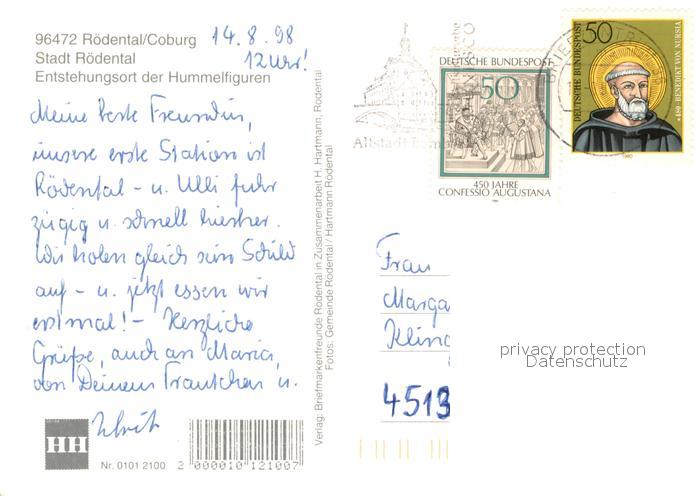 96472 Rödental/Coburg 14.8.98
Stadt Rödental 12 Uhr!
Entstehungsort der Hummelfiguren
Meine beste Freundin,
unsere erste Station ist
Rödental - u. Ulli fuhr
zügig u. schnell hierher.
Wir holen gleich sein Schild
auf - u. jetzt essen wir
erstmal! - Herzliche
Grüße, auch an Maria,
von Deinem Trautchen u.
Ulrich
HH
Nr. 0101 2100
2 000010 121007
Verlag: Briefmarkenfreunde Rödental in Zusammenarbeit H. Hartmann, Rödental
Fotos: Gemeinde Rödental / Hartmann Rödental
UNESCO
Altstadt Bam
DEUTSCHE BUNDESPOST
50
450 JAHRE
CONFESSIO AUGUSTANA
1980
DEUTSCHE BUNDESPOST
50
*480 · BENEDIKT VON NURSIA
1980
Frau
Marga
Kling
4513
privacy protection
Datenschutz